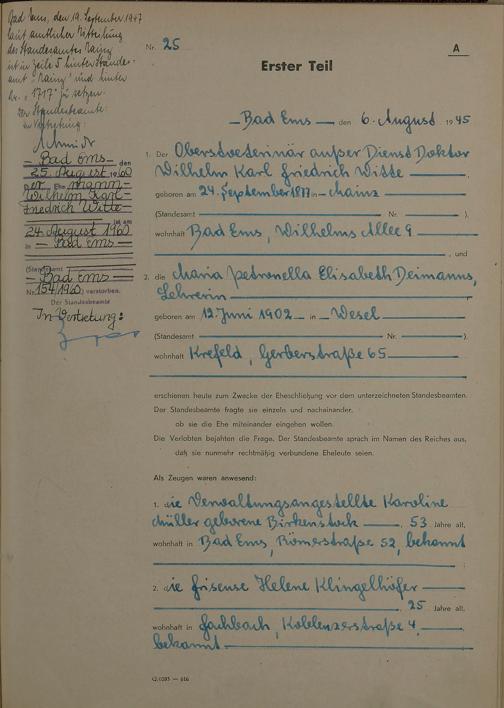 Bad Ems, den 19. September 1947
laut amtlicher Mitteilung
des Standesamtes Mainz
ist in Zeile 5 hinter Standes-
amt "Mainz" und hinter
Nr. "1717" zu setzen.
Der Standesbeamte:
In Vertretung:
Schmidt
Bad Ems den
25. August 1960
Der Ehemann
Wilhelm Karl
Friedrich Witte
ist am
24. August 1960
in Bad Ems
(Standesamt
Bad Ems
Nr. 154/1960 verstorben.
Der Standesbeamte
In Vertretung:
Nr. 25
A
Erster Teil
Bad Ems den 6. August 1945
1. Der Oberstveterinär außer Dienst Doktor
Wilhelm Karl Friedrich Witte
geboren am 24. September 1877 in Mainz
(Standesamt Nr. ).
wohnhaft Bad Ems, Wilhelms Allee 9
, und
2. die Maria Petronella Elisabeth Deimanns,
Lehrerin
geboren am 12. Juni 1902 in Wesel
(Standesamt Nr. ).
wohnhaft Krefeld, Gerberstraße 65
erschienen heute zum Zwecke der Eheschließung vor dem unterzeichneten Standesbeamten.
Der Standesbeamte fragte sie einzeln und nacheinander,
ob sie die Ehe miteinander eingehen wollen.
Die Verlobten bejahten die Frage. Der Standesbeamte sprach im Namen des Reiches aus,
daß sie nunmehr rechtmäßig verbundene Eheleute seien.
Als Zeugen waren anwesend:
1. die Verwaltungsangestellte Karoline
Müller geborene Birkenstock , 53 Jahre alt,
wohnhaft in Bad Ems, Römerstraße 52, bekannt
2. die Friseuse Helene Klingelhöfer
, 25 Jahre alt,
wohnhaft in Fachbach, Koblenzerstraße 4,
bekannt